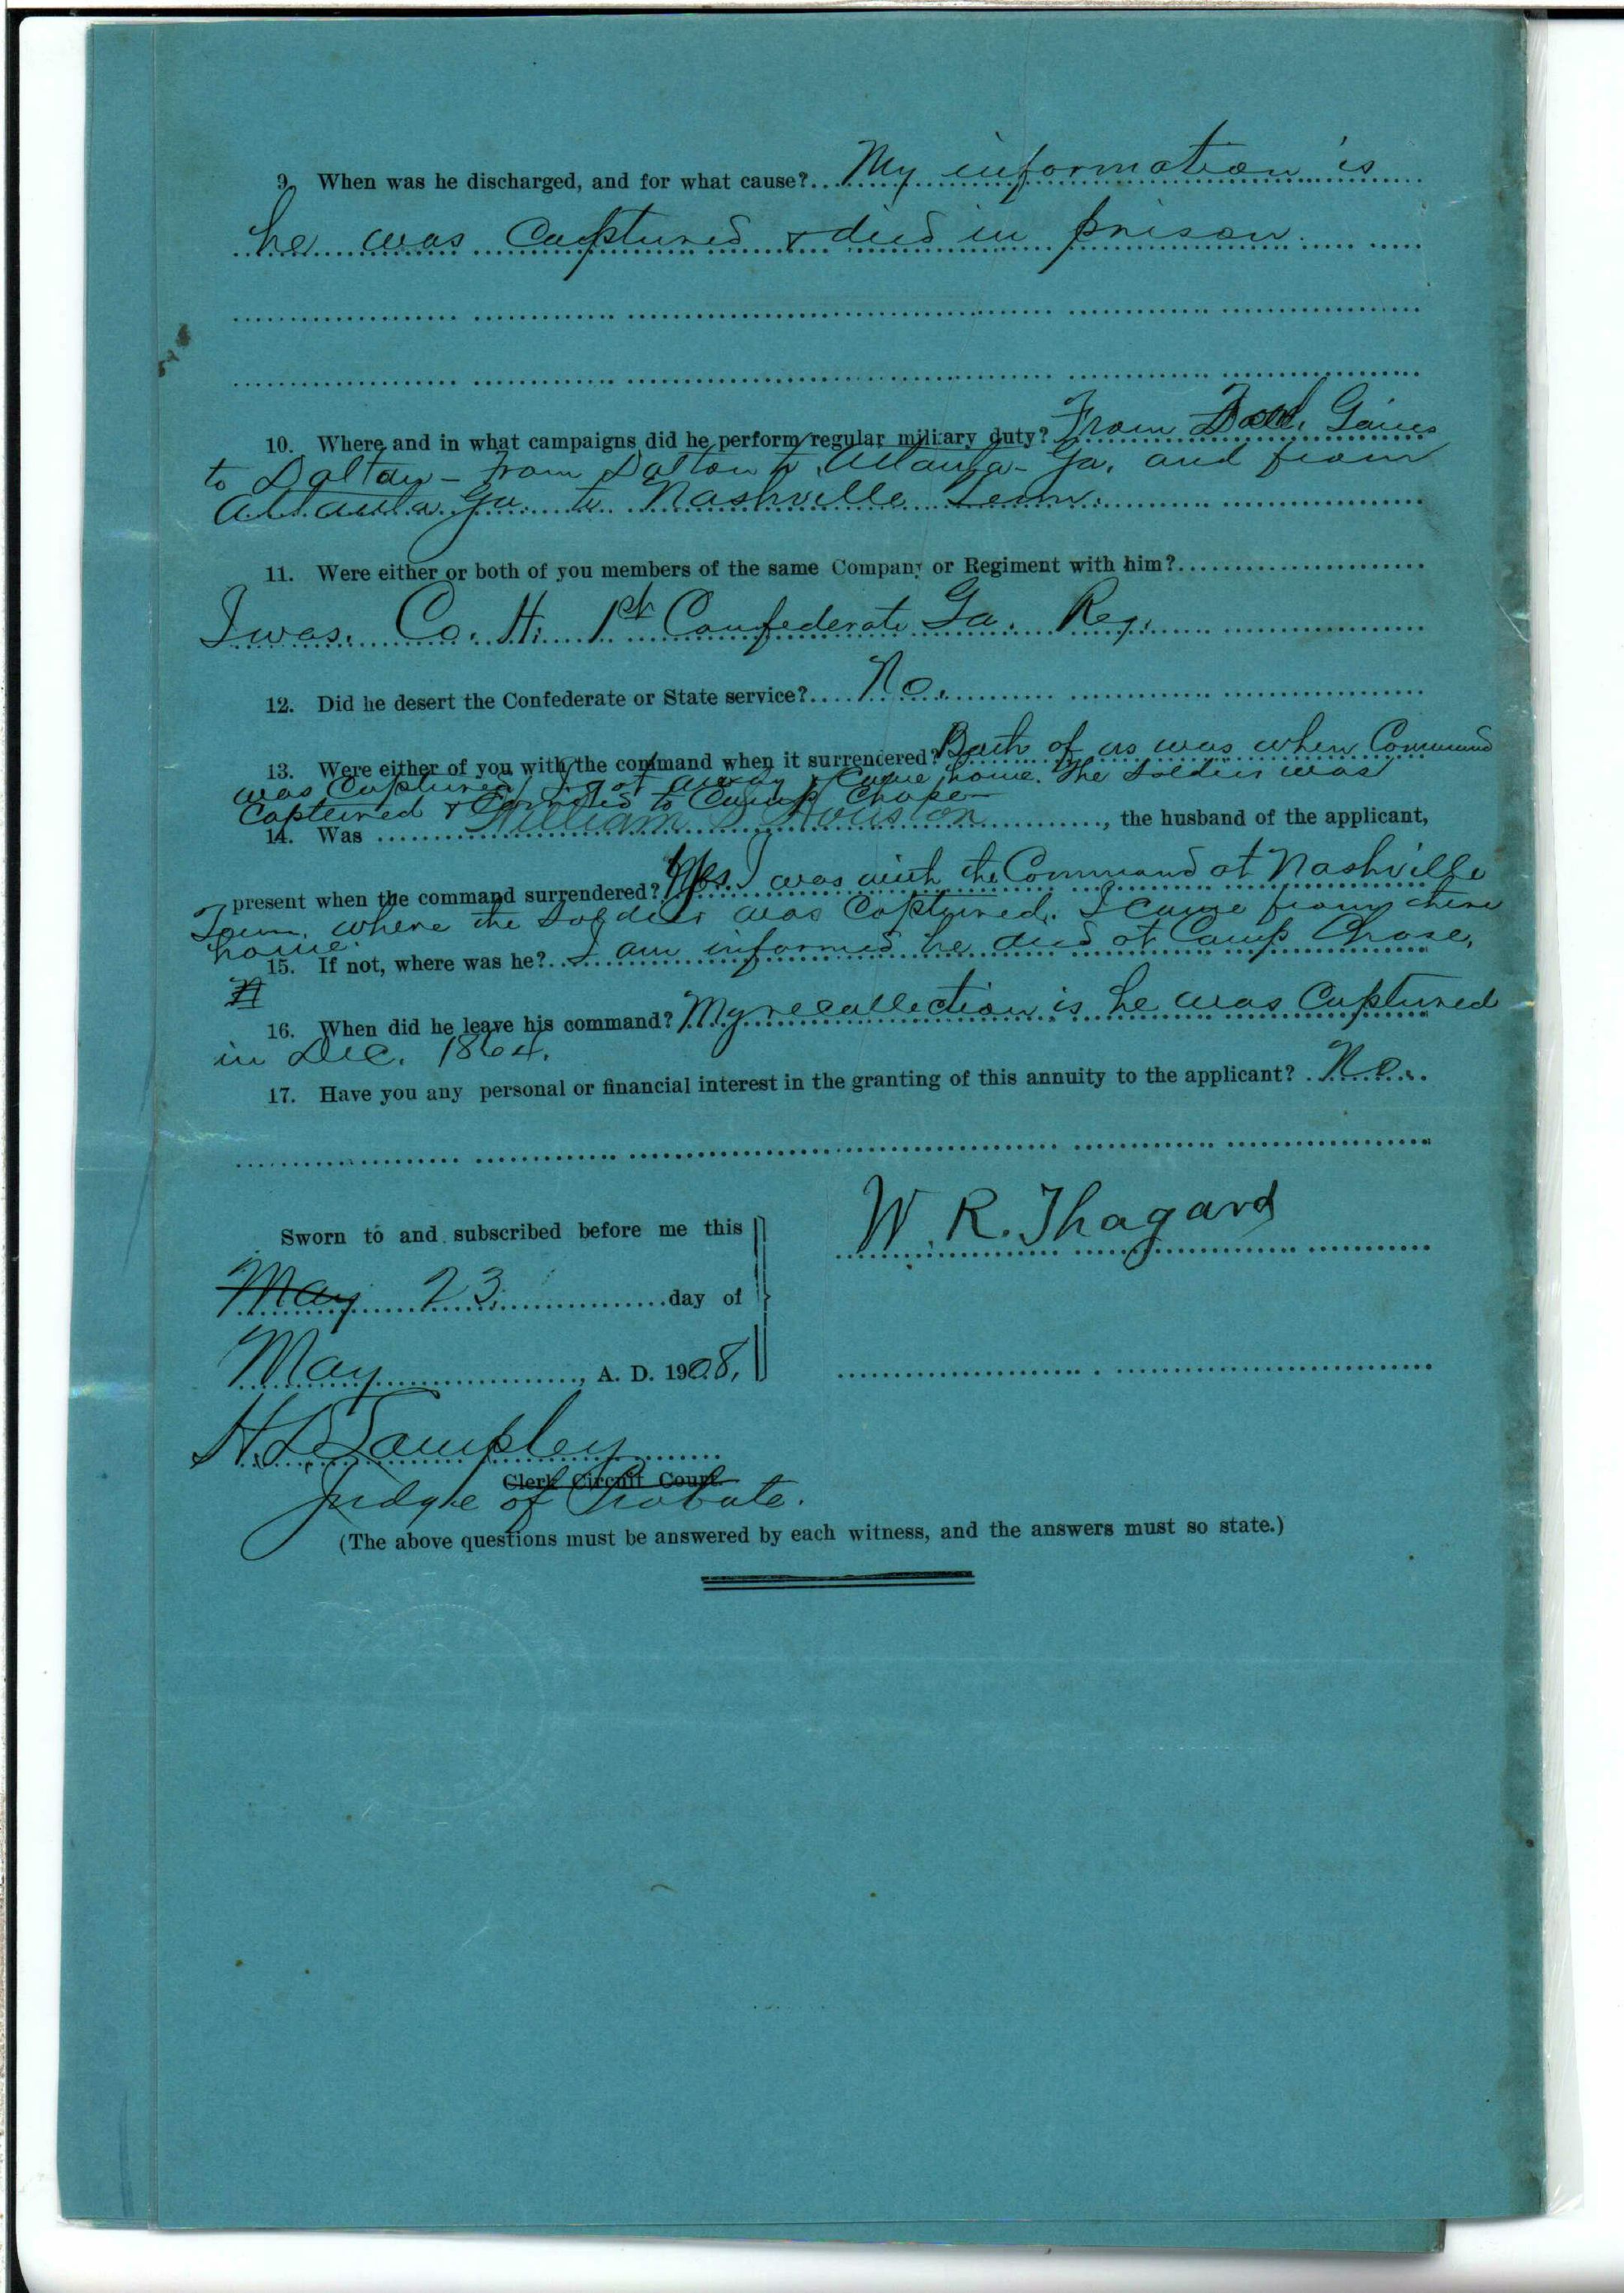 9. When was he discharged, and for what cause? My information is
he was Captured & died in prison.
10. Where and in what campaigns did he perform regular military duty? From Gaines
to Dalton - from Dalton to Atlanta - Ga. and from
Atlanta Ga. to Nashville Tenn.
11. Were either or both of you members of the same Company or Regiment with him?
I was. Co. H. 1st Confederate Ga. Reg.
12. Did he desert the Confederate or State service? No.
13. Were either of you with the command when it surrendered? Both of us was when Command
was Captured, I got away & Came home. The Soldier was
Captured & Carried to Camp Chase
14. Was William S Houston, the husband of the applicant,
present when the command surrendered? Yes. I was with the Command at Nashville
Tenn. where the Soldier was Captured. I came from there
home.
15. If not, where was he? I am informed he died at Camp Chase,
16. When did he leave his command? My recallection is he was Captured
in Dec. 1864.
17. Have you any personal or financial interest in the granting of this annuity to the applicant? No.
Sworn to and subscribed before me this
W. R. Thagard
May 23 day of
May, A. D. 1908,
H. L. Sampley
Clerk Circuit Court.
Judge of Probate.
(The above questions must be answered by each witness, and the answers must so state.)